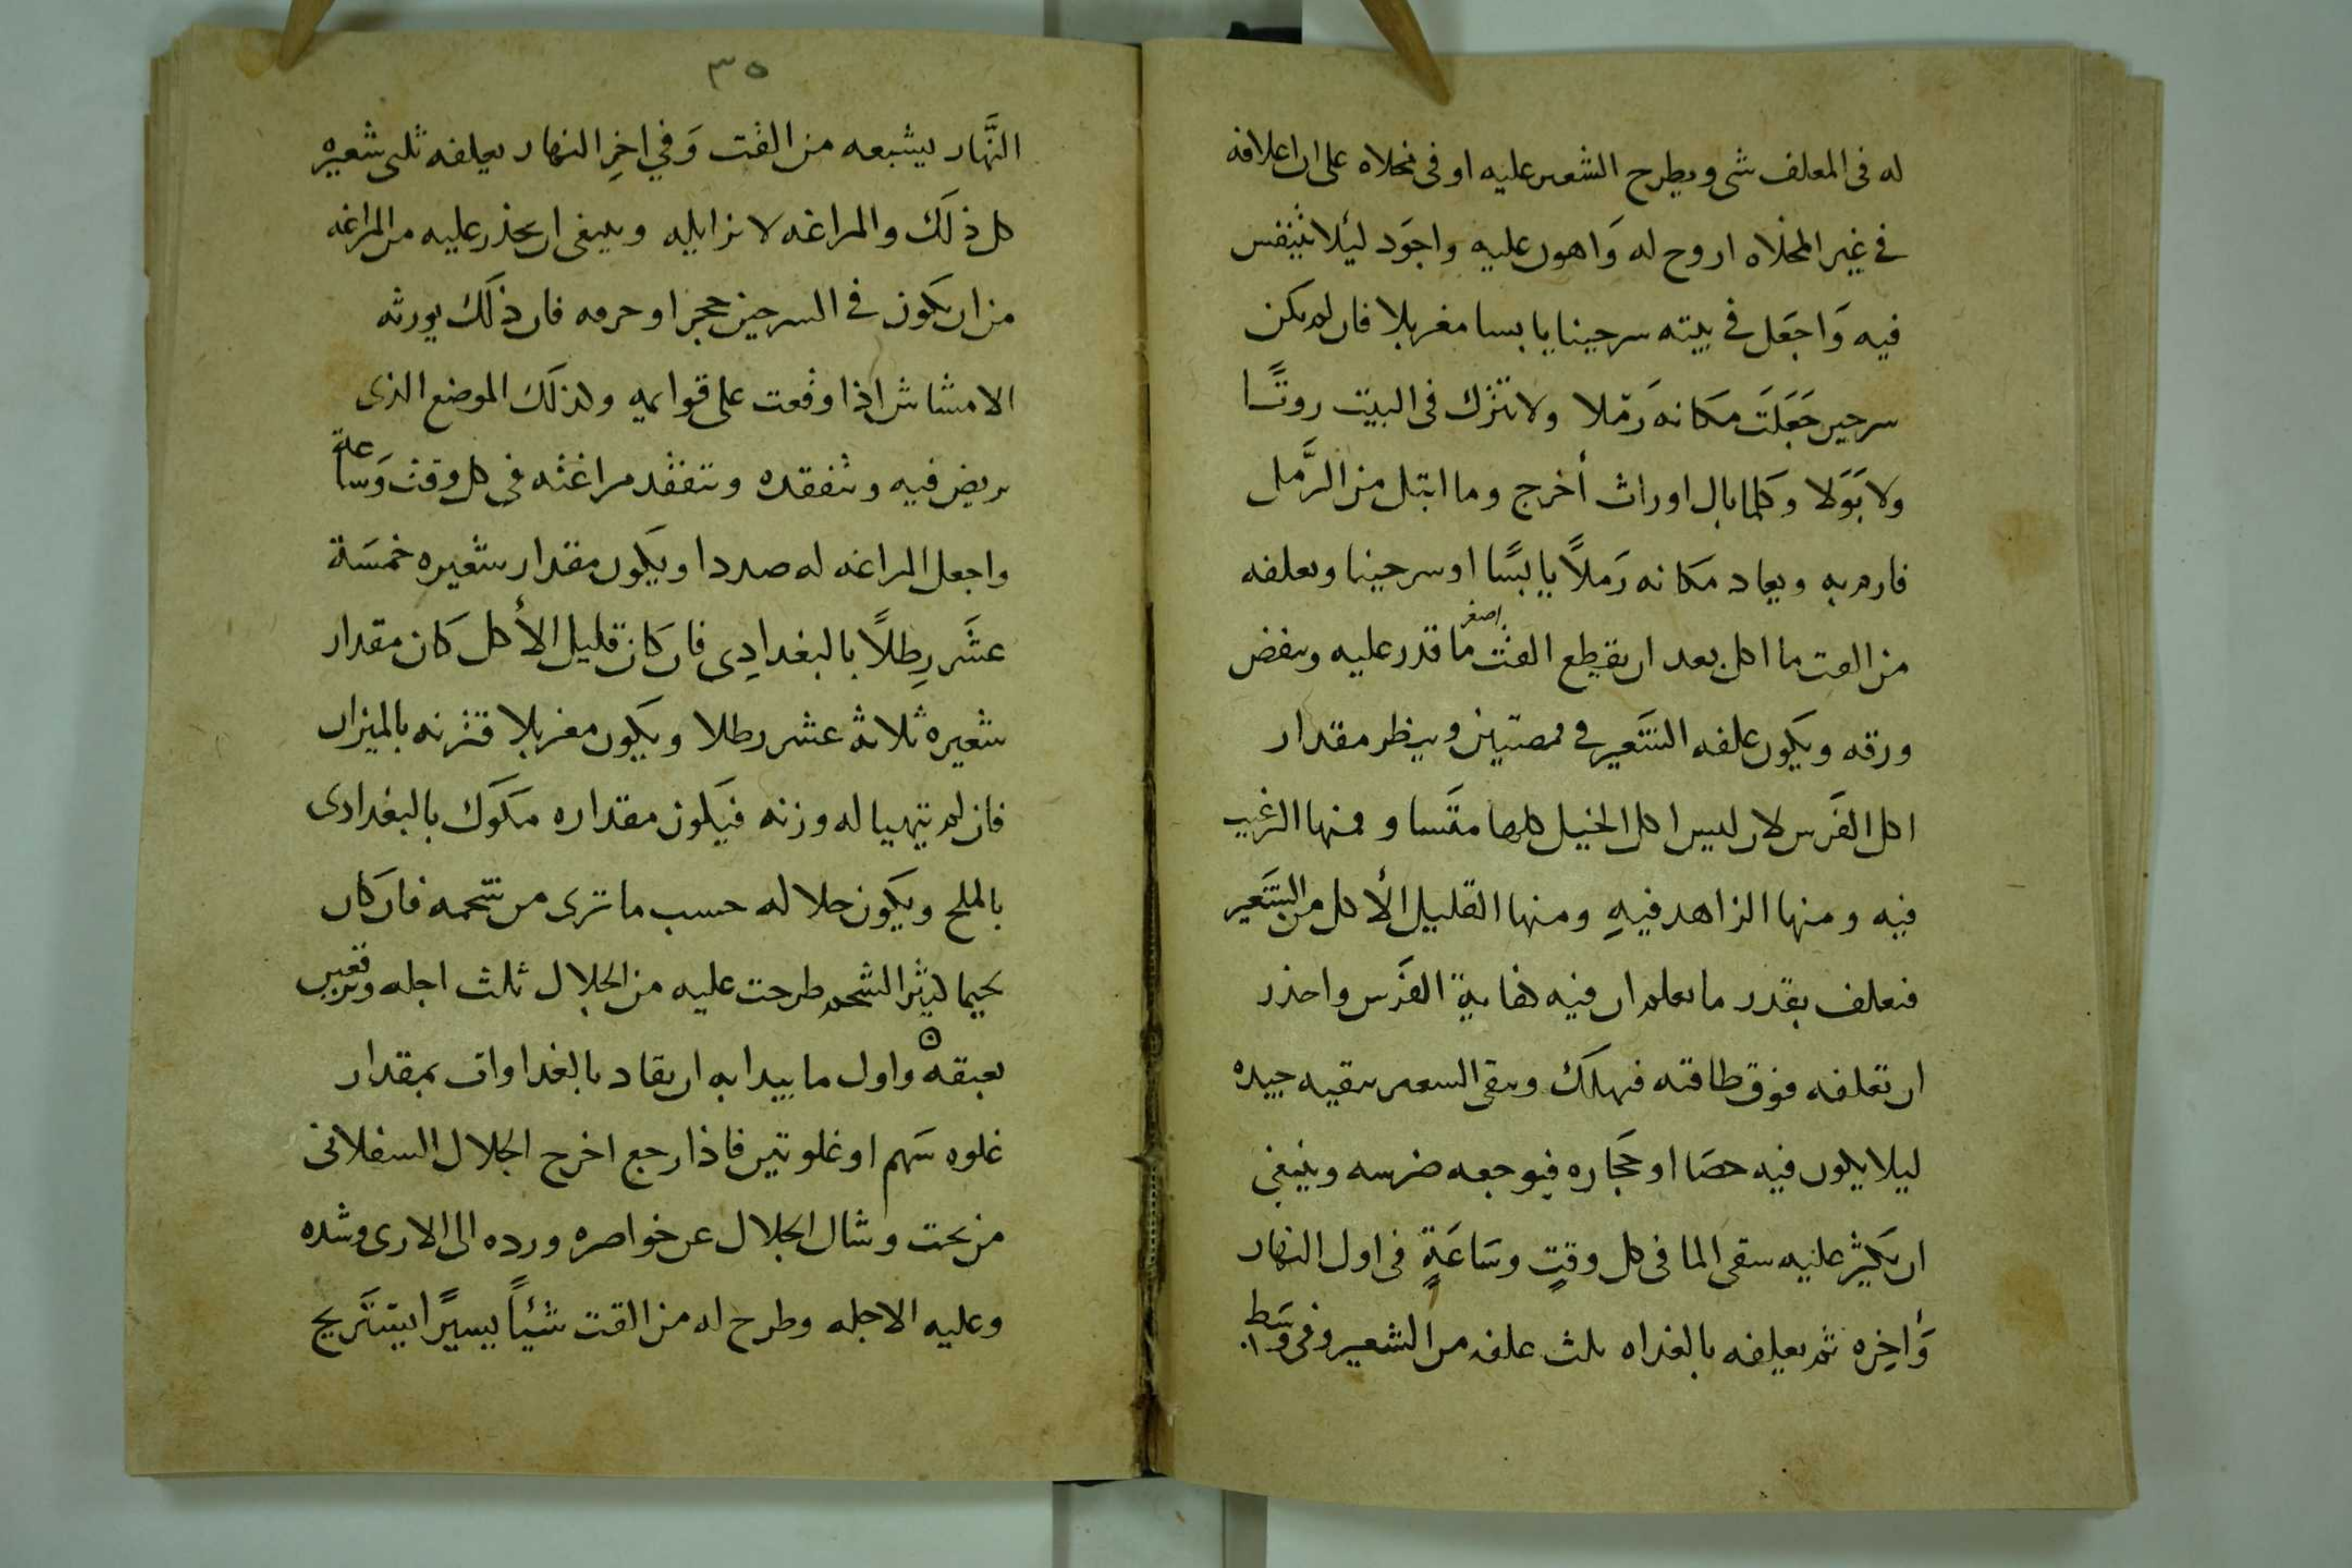 له فى المعلف شى ويطرح الشعير عليه او فى مخلاه على ان اعلافه
في غير المخلاه اروح له وَاهون عليه واجوَد لئلا يتنفس
فيه وَاجعَل في بيته سرجينا يابسا مغربلا فان لم يكن
سرجين جَعَلتَ مكانه رَملا ولا تترك فى البيت روثًا
ولا بَوَلا وكلما بال اوراث أخرج وما ابتل من الرَّمل
فارم به ويعاد مكانه رَملاً يابسًا او سرجينا وتعلفه
من القت ما اكل بعد ان يقطع القت اصغر ما قدر عليه وينفض
ورقه ويكون علفه الشَعير في قصتين وينظر مقدار
اكل الفَرس لان ليس اكل الخيل كلها مقَسا و فمنها الرغيب
فيه ومنها الزاهد فيهِ ومنها القليل الأكل من الشَعير
فتعلف بقدر ما تعلم ان فيه كفاية الفَرس واحذر
ان تعلفه فوق طاقته فهلك وينقى الشعير تنقيه جيده
ليلا يكون فيه حصَا او حَجاره فيوجعه ضرسه وينبغى
ان يكثر عليه سقى الما فى كل وقتٍ وسَاعَةٍ فى اول النهار
وَأخِره ثم يعلفه بالغداه ثلث علفه من الشعير وفى وسَط
٣٥
النَّهار يشبعه من القت وَفي اخِرِ النهار يعلفه ثلثى شعيره
كل ذلَك والمراغه لا تزايله وينبغى ان يحذر عليه من المراغه
من ان يكون في السرجين حجر او خرمه فان ذلَك يورثه
الامشاش اذا وقعت على قوايمه ولذلَك الموضع الذى
يربض فيه وتفقده وتتفقد مراغته فى كل وقت وَساعة
واجعل المراغه له صددا ويكون مقدار شعيره خمسَة
عشَر رِطلاً بالبغدادِى فان كان قليل الأكل كان مقدار
شعيره ثلاثه عشر رطلا ويكون مغربلا فتزنه بالميزان
فان لم يتهيا له وزنه فيكون مقداره مكوك بالبغدادى
بالملح ويكون جلاله حسب ما ترى من شحمه فان كان
لحيما كثير الشحم طرحت عليه من الجلال ثلث اجله وتعريـ
بعبقه واول ما يبدا به ان يقاد بالغداوات بمقدار
غلوه سَهم او غلوتين فاذا رجع اخرج الجلال السفلانى
من تحت وشال الجلال عن خواصره ورده الى الارى وشده
وعليه الاجله وطرح له من القت شيئاً يسيرًا يستَريح